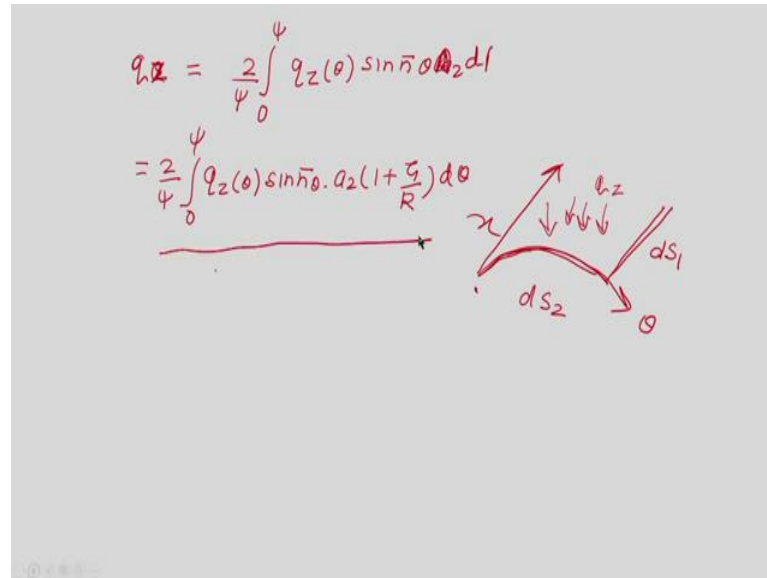 qz = 2/ψ ∫₀^ψ qz(θ) sin n̄ θ A₂ dθ
= 2/ψ ∫₀^ψ qz(θ) sin n̄θ . a₂(1 + ζ/R) dθ
qz
x
ds₁
ds₂
θ